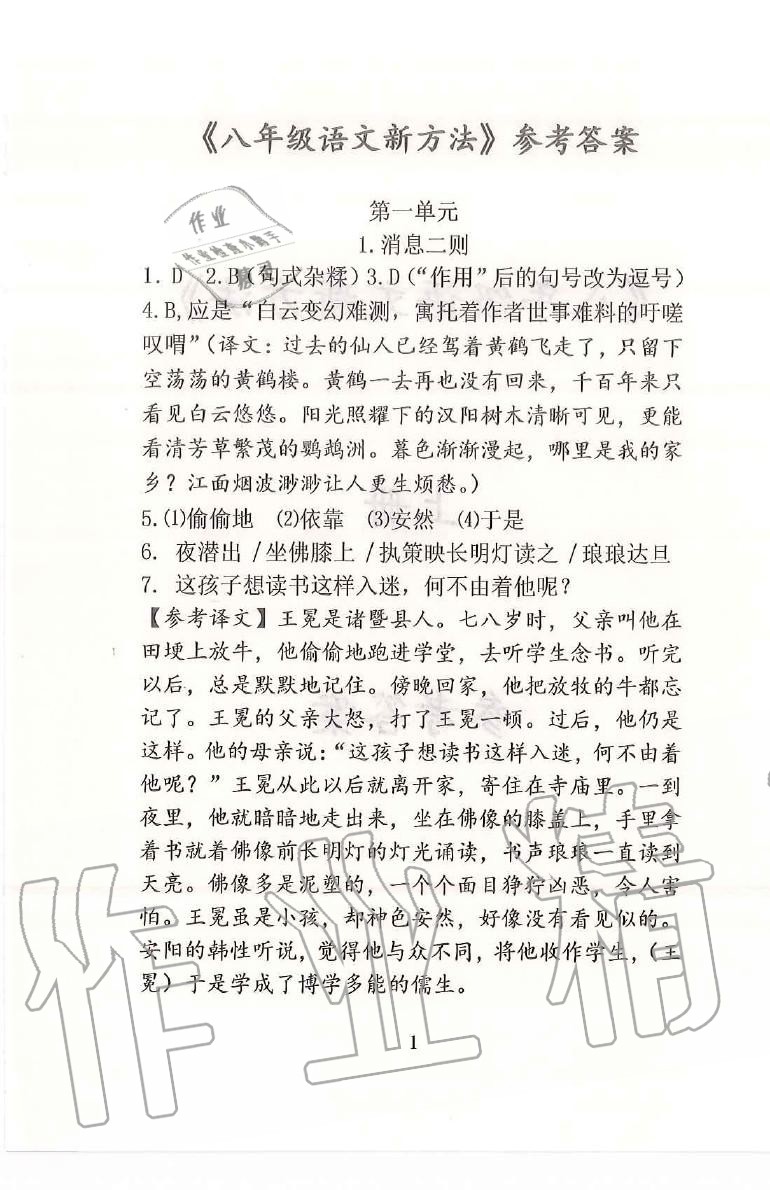 《八年级语文新方法》参考答案
第一单元
1.消息二则
1. D 2.B(句式杂糅) 3.D(“作用”后的句号改为逗号)
4.B,应是“白云变幻难测，寓托着作者世事难料的吁嗟
叹喟”(译文：过去的仙人已经驾着黄鹤飞走了，只留下
空荡荡的黄鹤楼。黄鹤一去再也没有回来，千百年来只
看见白云悠悠。阳光照耀下的汉阳树木清晰可见，更能
看清芳草繁茂的鹦鹉洲。暮色渐渐漫起，哪里是我的家
乡？江面烟波渺渺让人更生烦愁。)
5.(1)偷偷地 (2)依靠 (3)安然 (4)于是
6. 夜潜出 /坐佛膝上 /执策映长明灯读之 /琅琅达旦
7. 这孩子想读书这样入迷，何不由着他呢？
【参考译文】王冕是诸暨县人。七八岁时，父亲叫他在
田埂上放牛，他偷偷地跑进学堂，去听学生念书。听完
以后，总是默默地记住。傍晚回家，他把放牧的牛都忘
记了。王冕的父亲大怒，打了王冕一顿。过后，他仍是
这样。他的母亲说：“这孩子想读书这样入迷，何不由着
他呢？”王冕从此以后就离开家，寄住在寺庙里。一到
夜里，他就暗暗地走出来，坐在佛像的膝盖上，手里拿
着书就着佛像前长明灯的灯光诵读，书声琅琅一直读到
天亮。佛像多是泥塑的，一个个面目狰狞凶恶，令人害
怕。王冕虽是小孩，却神色安然，好像没有看见似的。
安阳的韩性听说，觉得他与众不同，将他收作学生，(王
冕) 于是学成了博学多能的儒生。
1
作业
作业检查小助手
作业精